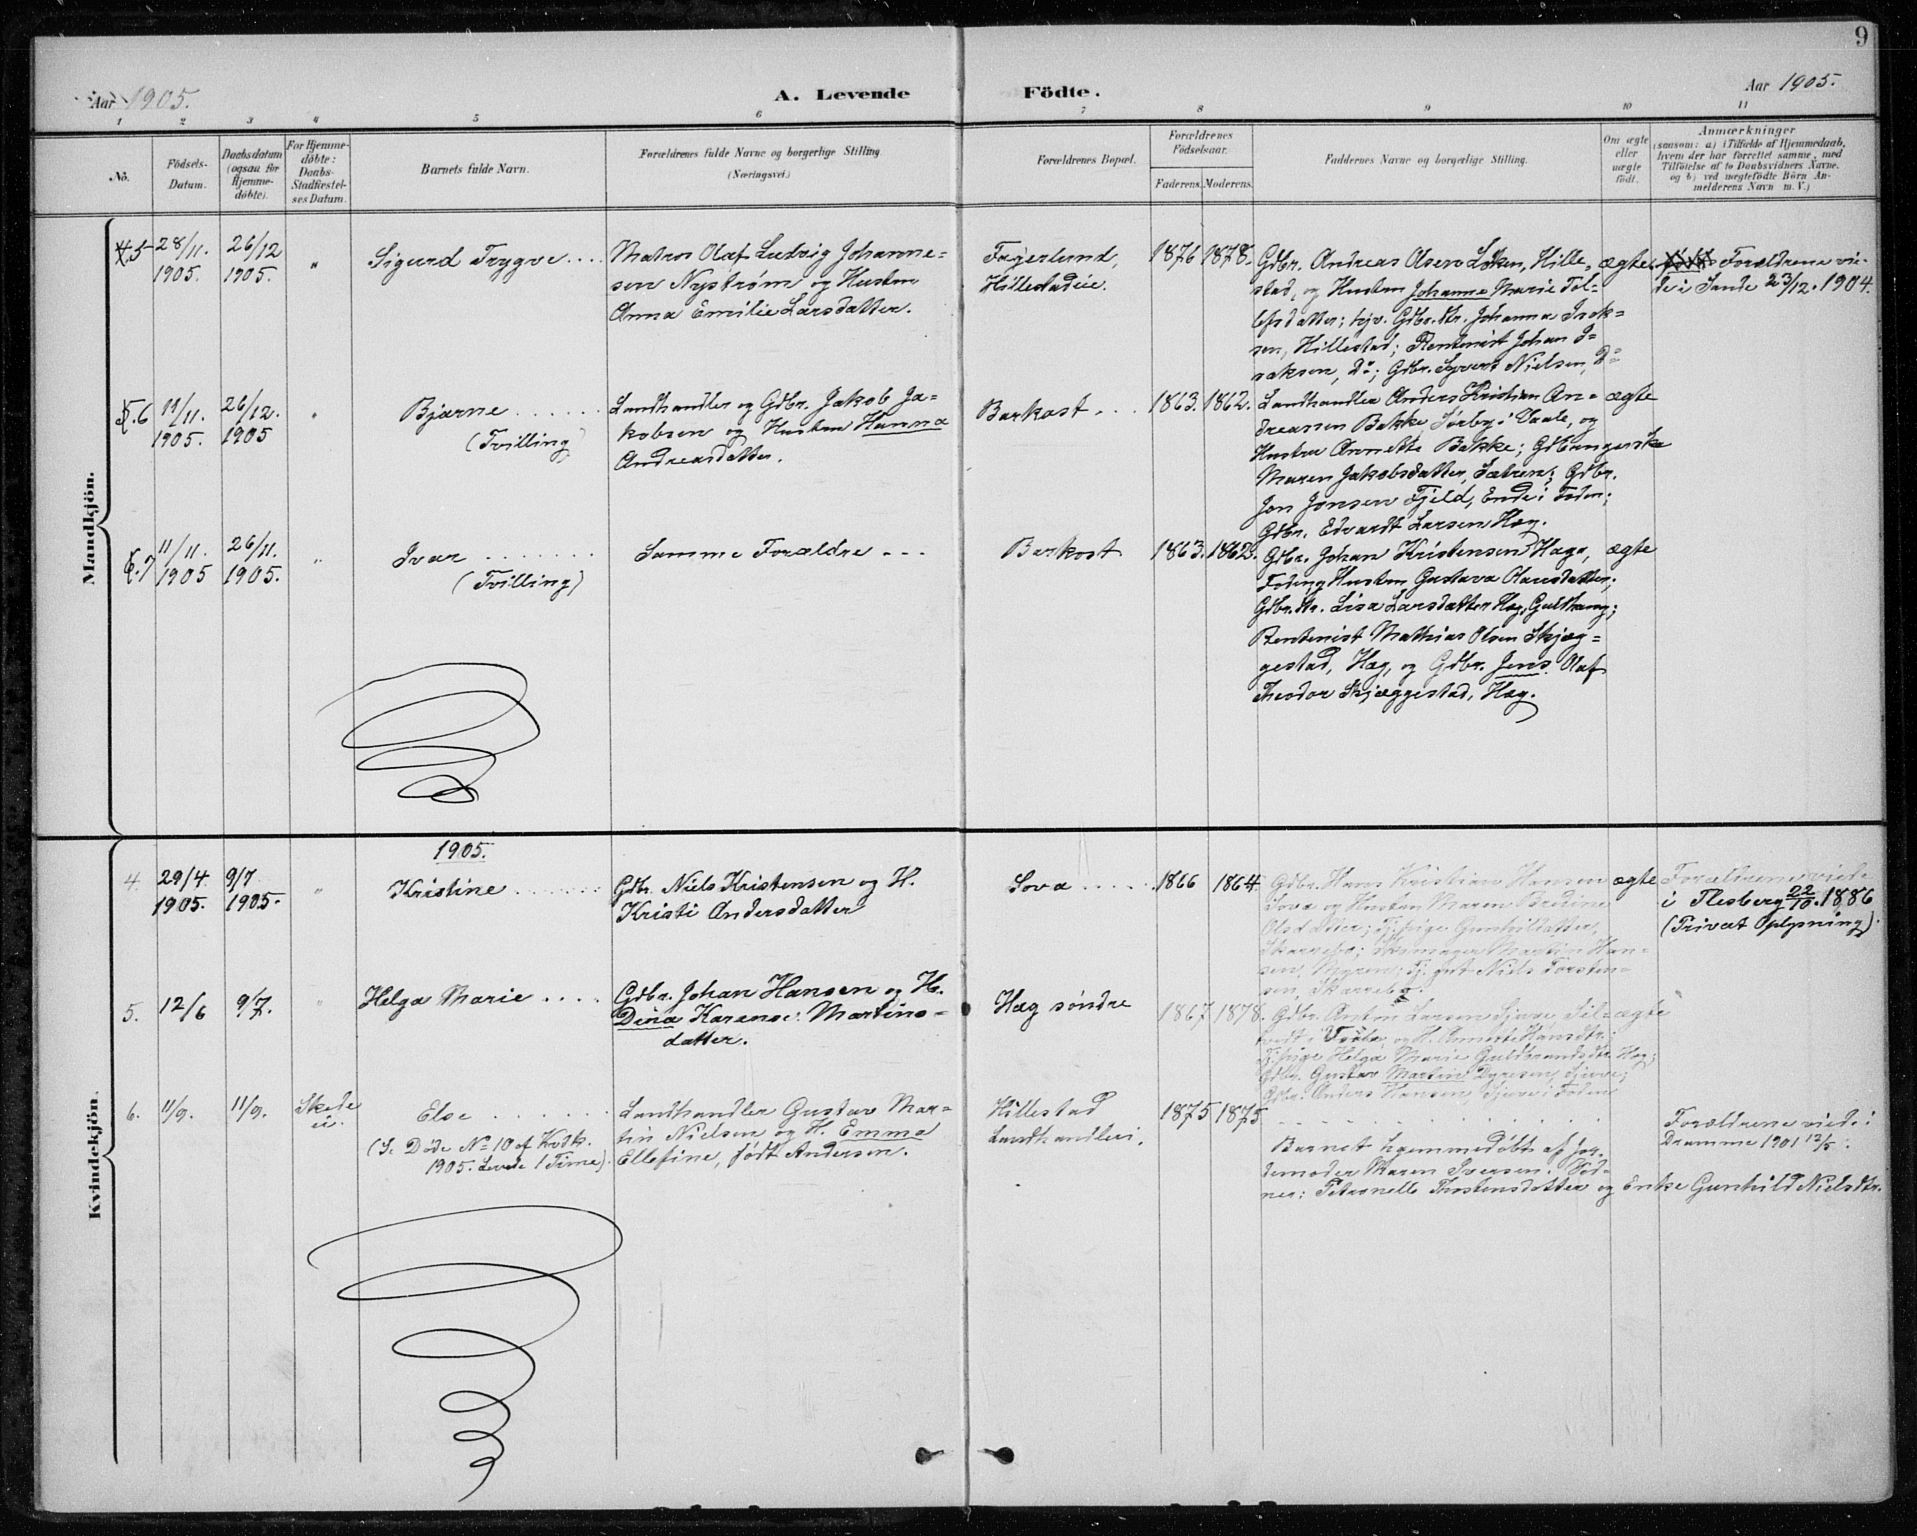 9
Aar 1905.
A. Levende Födte.
Aar 1905.
1 2 3 4 5 6 7 8 9 10 11
No.
Födsels-
Datum.
Daabsdatum
(ogsaa for
Hjemme-
døbte).
For Hjemme-
døbte:
Daabs-
Stadfæstel-
ses Datum.
Barnets fulde Navn.
Forældrenes fulde Navne og borgerlige Stilling
(Næringsvei.)
Forældrenes Bopæl.
Forældrenes
Födselsaar.
Faderens. Moderens.
Faddernes Navne og borgerlige Stilling.
Om ægte
eller
uægte
födt.
Anmærkninger
(saasom: a) i Tilfælde af Hjemmedaab,
hvem der har forrettet samme, med
Tilföielse af to Daabsvidners Navne.
og b) ved uægtefödte Börn An-
melderens Navn m. V.)
Mandkjön.
5
28/11.
1905.
26/12
1905.
"
Sigurd Trygve....
Matros Olaf Ludvig Johanne-
sen Nystrøm og Hustru
Anna Emilie Larsdatter.
Fagerlund,
Hillestadeie.
1876 1878.
Gdbr. Andreas Olsen Løken, Hille-
stad, og Hustru Johanne Marie Tol-
lefsdatter; Gdbr. Johanna Isak-
sen, Hillestad; Rentenist Johan I-
saksen, Do; Gdbr. Syvert Nielsen, Do
ægte
Forældrene vie-
de i Sande 23/12. 1904.
6
11/11.
1905.
26/12.
1905
"
Bjarne ......
(Tvilling)
Landhandler og Gdbr. Jakob Ja-
kobsen og Hustru Hanna
Andreasdatter.
Barkost...
1863. 1862.
Landhandler Anders Kristian An-
dreassen Bakke, Sørby i Vaale, og
Hustru Annette Bakke; Gdbrugerske
Maren Jakobsdatter, Sætren; Gdbr.
Jon Jonsen Fjeld, Ende i Foden;
Gdbr. Edvardt Larsen Hæg.
ægte
7
11/11.
1905
26/11.
1905.
"
Ivar .......
(Tvilling)
Samme Forældre ---
Barkost
1863. 1862.
Gdbr. Johan Kristensen Haga,
Foden, og Hustru Gustava Olausdatter;
Gdbr. Lisa Larsdatter Hæg, Gulthaug;
Rentenist Mathias Olsen Skjæg-
gestad, Hæg, og Gdbr. Jens Olaf
Theodor Skjæggestad, Hæg.
ægte
Kvindekjön.
1905.
4.
29/4
1905.
9/7
1905.
"
Kristine .......
Gdbr. Niels Kristensen og H.
Kristi Andersdatter
Sova .....
1866 1864.
Gdbr. Hans Kristian Hansen
Sova og Hustru Maren Bredine
Olsdatter;
Skarrebø; Martin Han-
sen, Myren; Tj. gut Niels Torsten-
sen, Skarrebø.
ægte
Forældrene viede
i Flesberg 22/10. 1886
(Privat Oplysning).
5.
12/6
9/7.
"
Helga Marie ....
Gdbr. Johan Hansen og H.
Dina Karense Martins-
datter.
Hæg søndre
1867 1878.
Gdbr. Anton Larsen
og H. Annette Hansdtr.;
Tj. pige Helga Marie Guldbrandsdtr. Hæg;
Gdbr. Gustav Martin Dyresen,
Gdbr. Anders Hansen,
ægte
6.
11/9.
11/9.
Skede
ei.
Else .......
(Se Døde No 10 af Kvdk.
1905. Levede 1 Time).
Landhandler Gustav Mar-
tin Nielsen og H. Emma
Ellefine, født Andersen.
Hillestad
Landhandleri.
1875 1875
Barnet hjemmedøbt af Jor-
demoder Maren Iversen. Vid-
ner: Petronelle Thostensdatter og Enke Gunhild Nielsdtr.
Forældrene viede i
Drammen 1901 12/5.